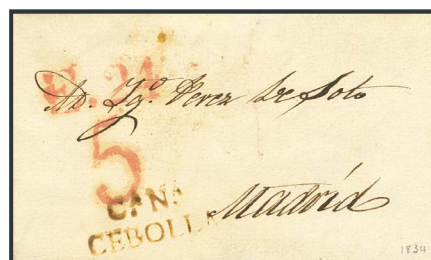 Ad. Ygº. Perez de Soto
5
CANA
CEBOLLA
Madrid
1834